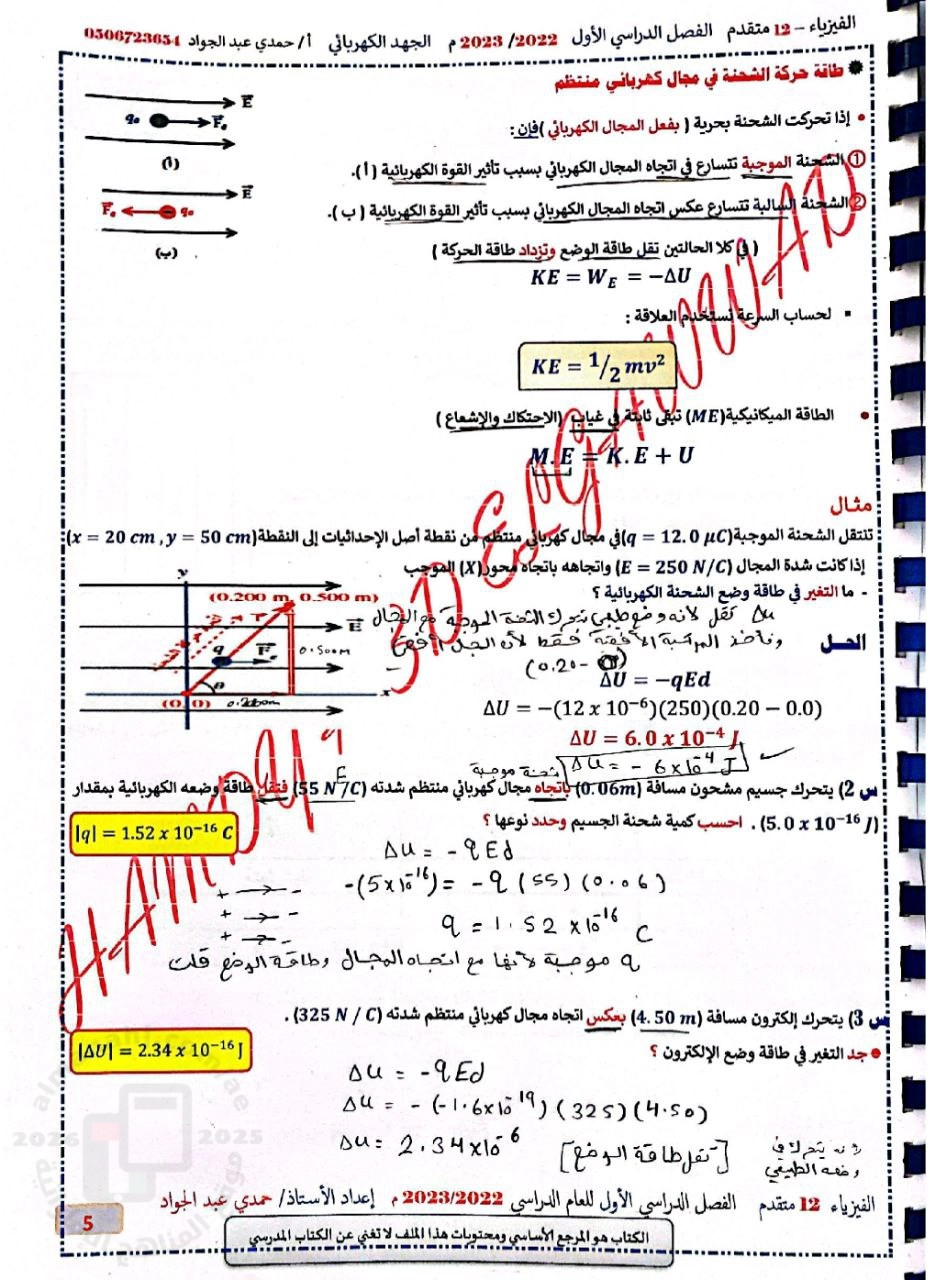 الفيزياء – 12 متقدم الفصل الدراسي الأول 2022/ 2023 م الجهد الكهربائي أ/ حمدي عبد الجواد 0506723654
طاقة حركة الشحنة في مجال كهربائي منتظم
إذا تحركت الشحنة بحرية ( بفعل المجال الكهربائي )فإن :
① الشحنة الموجبة تتسارع في اتجاه المجال الكهربائي بسبب تأثير القوة الكهربائية ( أ ).
② الشحنة السالبة تتسارع عكس اتجاه المجال الكهربائي بسبب تأثير القوة الكهربائية ( ب ).
E
q₀ Fₑ
(أ)
E
Fₑ q₀
(ب)
( في كلا الحالتين تقل طاقة الوضع وتزداد طاقة الحركة )
KE = W_E = −ΔU
لحساب السرعة نستخدم العلاقة :
KE = 1/2 mv²
الطاقة الميكانيكية(ME) تبقى ثابتة في غياب (الاحتكاك والإشعاع )
M.E = K.E + U
مثال
تنتقل الشحنة الموجبة(q = 12.0 μC)في مجال كهربائي منتظم من نقطة أصل الإحداثيات إلى النقطة(x = 20 cm , y = 50 cm)
إذا كانت شدة المجال (E = 250 N/C) واتجاهه باتجاه محور(X) الموجب
- ما التغير في طاقة وضع الشحنة الكهربائية ؟
y
(0.200 m, 0.500 m)
E
0.500m
q F
θ
x
(0,0) 0.200m
Δu تقل لانه وضع طبيعي تتحرك الشحنة الموجبة مع المجال
وناخذ المركبة الأفقية فقط لأن المجال أفقي
الحل
(0.20-0)
ΔU = −qEd
ΔU = −(12 x 10⁻⁶)(250)(0.20 − 0.0)
ΔU = 6.0 x 10⁻⁴ J
Δu = - 6x10⁻⁴ J
شحنة موجبة
E
س 2) يتحرك جسيم مشحون مسافة (0.06m) باتجاه مجال كهربائي منتظم شدته (55 N /C) فتقل طاقة وضعه الكهربائية بمقدار
(5.0 x 10⁻¹⁶ J) . احسب كمية شحنة الجسيم وحدد نوعها ؟
|q| = 1.52 x 10⁻¹⁶ C
Δu = - q Ed
-(5x10⁻¹⁶) = - q (55) (0.06)
+ → -
q = 1.52 x10⁻¹⁶ C
+ → -
+ → -
q موجبة لأنها مع اتجاه المجال وطاقة الوضع قلت
س 3) يتحرك إلكترون مسافة (4.50 m) بعكس اتجاه مجال كهربائي منتظم شدته (325 N / C) .
جد التغير في طاقة وضع الإلكترون ؟
|ΔU| = 2.34 x 10⁻¹⁶ J
Δu = - q Ed
Δu = - (-1.6x10⁻¹⁹) (325) (4.50)
Δu = 2.34x10⁻⁶ [تقل طاقة الوضع]
لانه يتحرك في
وضعه الطبيعي
HAMDY 3D ENG AWWAD
almanahj.com.ae
2026 2025
موقع المناهج
الفيزياء 12 متقدم الفصل الدراسي الأول للعام الدراسي 2023/2022 م إعداد الأستاذ/ حمدي عبد الجواد
5
الكتاب هو المرجع الأساسي ومحتويات هذا الملف لا تغني عن الكتاب المدرسي